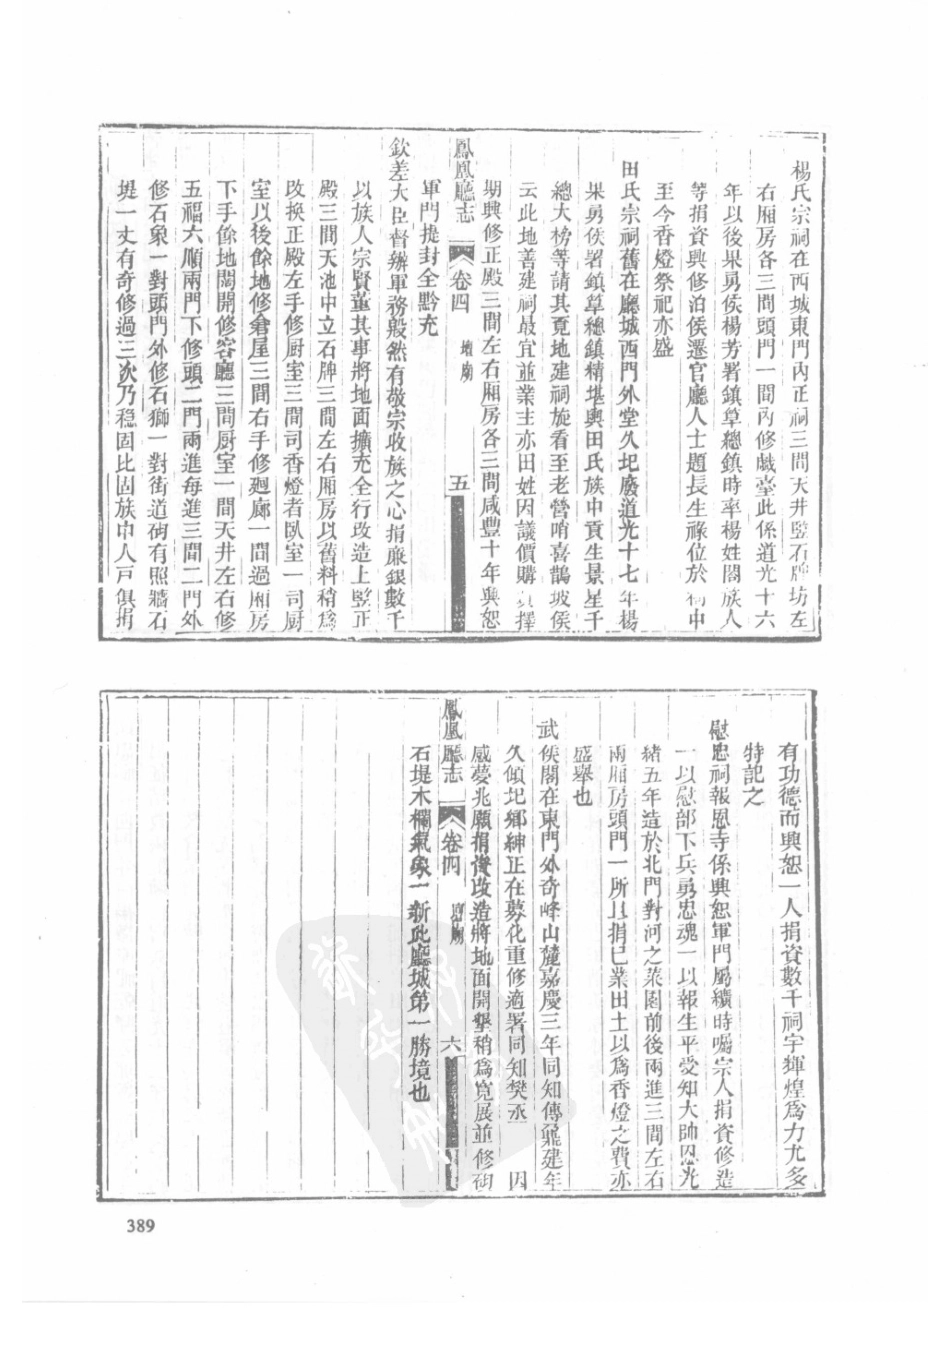 楊氏宗祠在西城東門內正祠三間天井竪石牌坊左
右厢房各三間頭門一間內修戯臺此係道光十六
年以後果勇侯楊芳署鎮草總鎮時率楊姓閤族人
等捐資興修泊侯遷官廳人士題長生祿位於祠中
至今香燈祭祀亦盛
田氏宗祠舊在廳城西門外堂久圮廢道光十七年楊
果勇侯署鎮草總鎮精堪輿田氏族中貢生景星千
總大榜等請其覓地建祠旋看至老營哨喜鵲坡侯
云此地善建祠最宜並業主亦田姓因議價購擇
期興修正殿三間左右厢房各三間咸豐十年興恕
鳳凰廳志 卷四 壇廟 五
軍門提封全黔充
欽差大臣督辦軍務殷然有敬宗收族之心捐廉銀數千
以族人宗賢董其事將地面擴充全行改造上竪正
殿三間天池中立石牌三間左右厢房以舊料稍爲
改換正殿左手修厨室三間司香燈者臥室一司厨
室以後餘地修倉屋三間右手修廻廊一間過厢房
下手餘地闊開修客廳三間厨室一間天井左右修
五福六順兩門下修頭二門兩進每進三間二門外
修石象一對頭門外修石獅一對街道砌有照牆石
堤一丈有奇修過三次乃稳固比固族中人戸俱捐
有功德而興恕一人捐資數千祠宇輝煌爲力尤多
特記之
慰忠祠報恩寺係興恕軍門屬纊時囑宗人捐資修造
一以慰部下兵勇忠魂一以報生平受知大帥恩光
緒五年造於北門對河之菜園前後兩進三間左右
兩厢房頭門一所且捐已業田土以爲香燈之費亦
盛舉也
武侯閣在東門外奇峰山麓嘉慶三年同知傅鼐建年
久傾圮鄉紳正在募化重修適署同知樊丞 因
感夢兆願捐俸改造將地面開墾稍爲寬展並修砌
鳳凰廳志 卷四 壇廟 六
石堤木欄氣象一新此廳城第一勝境也
389